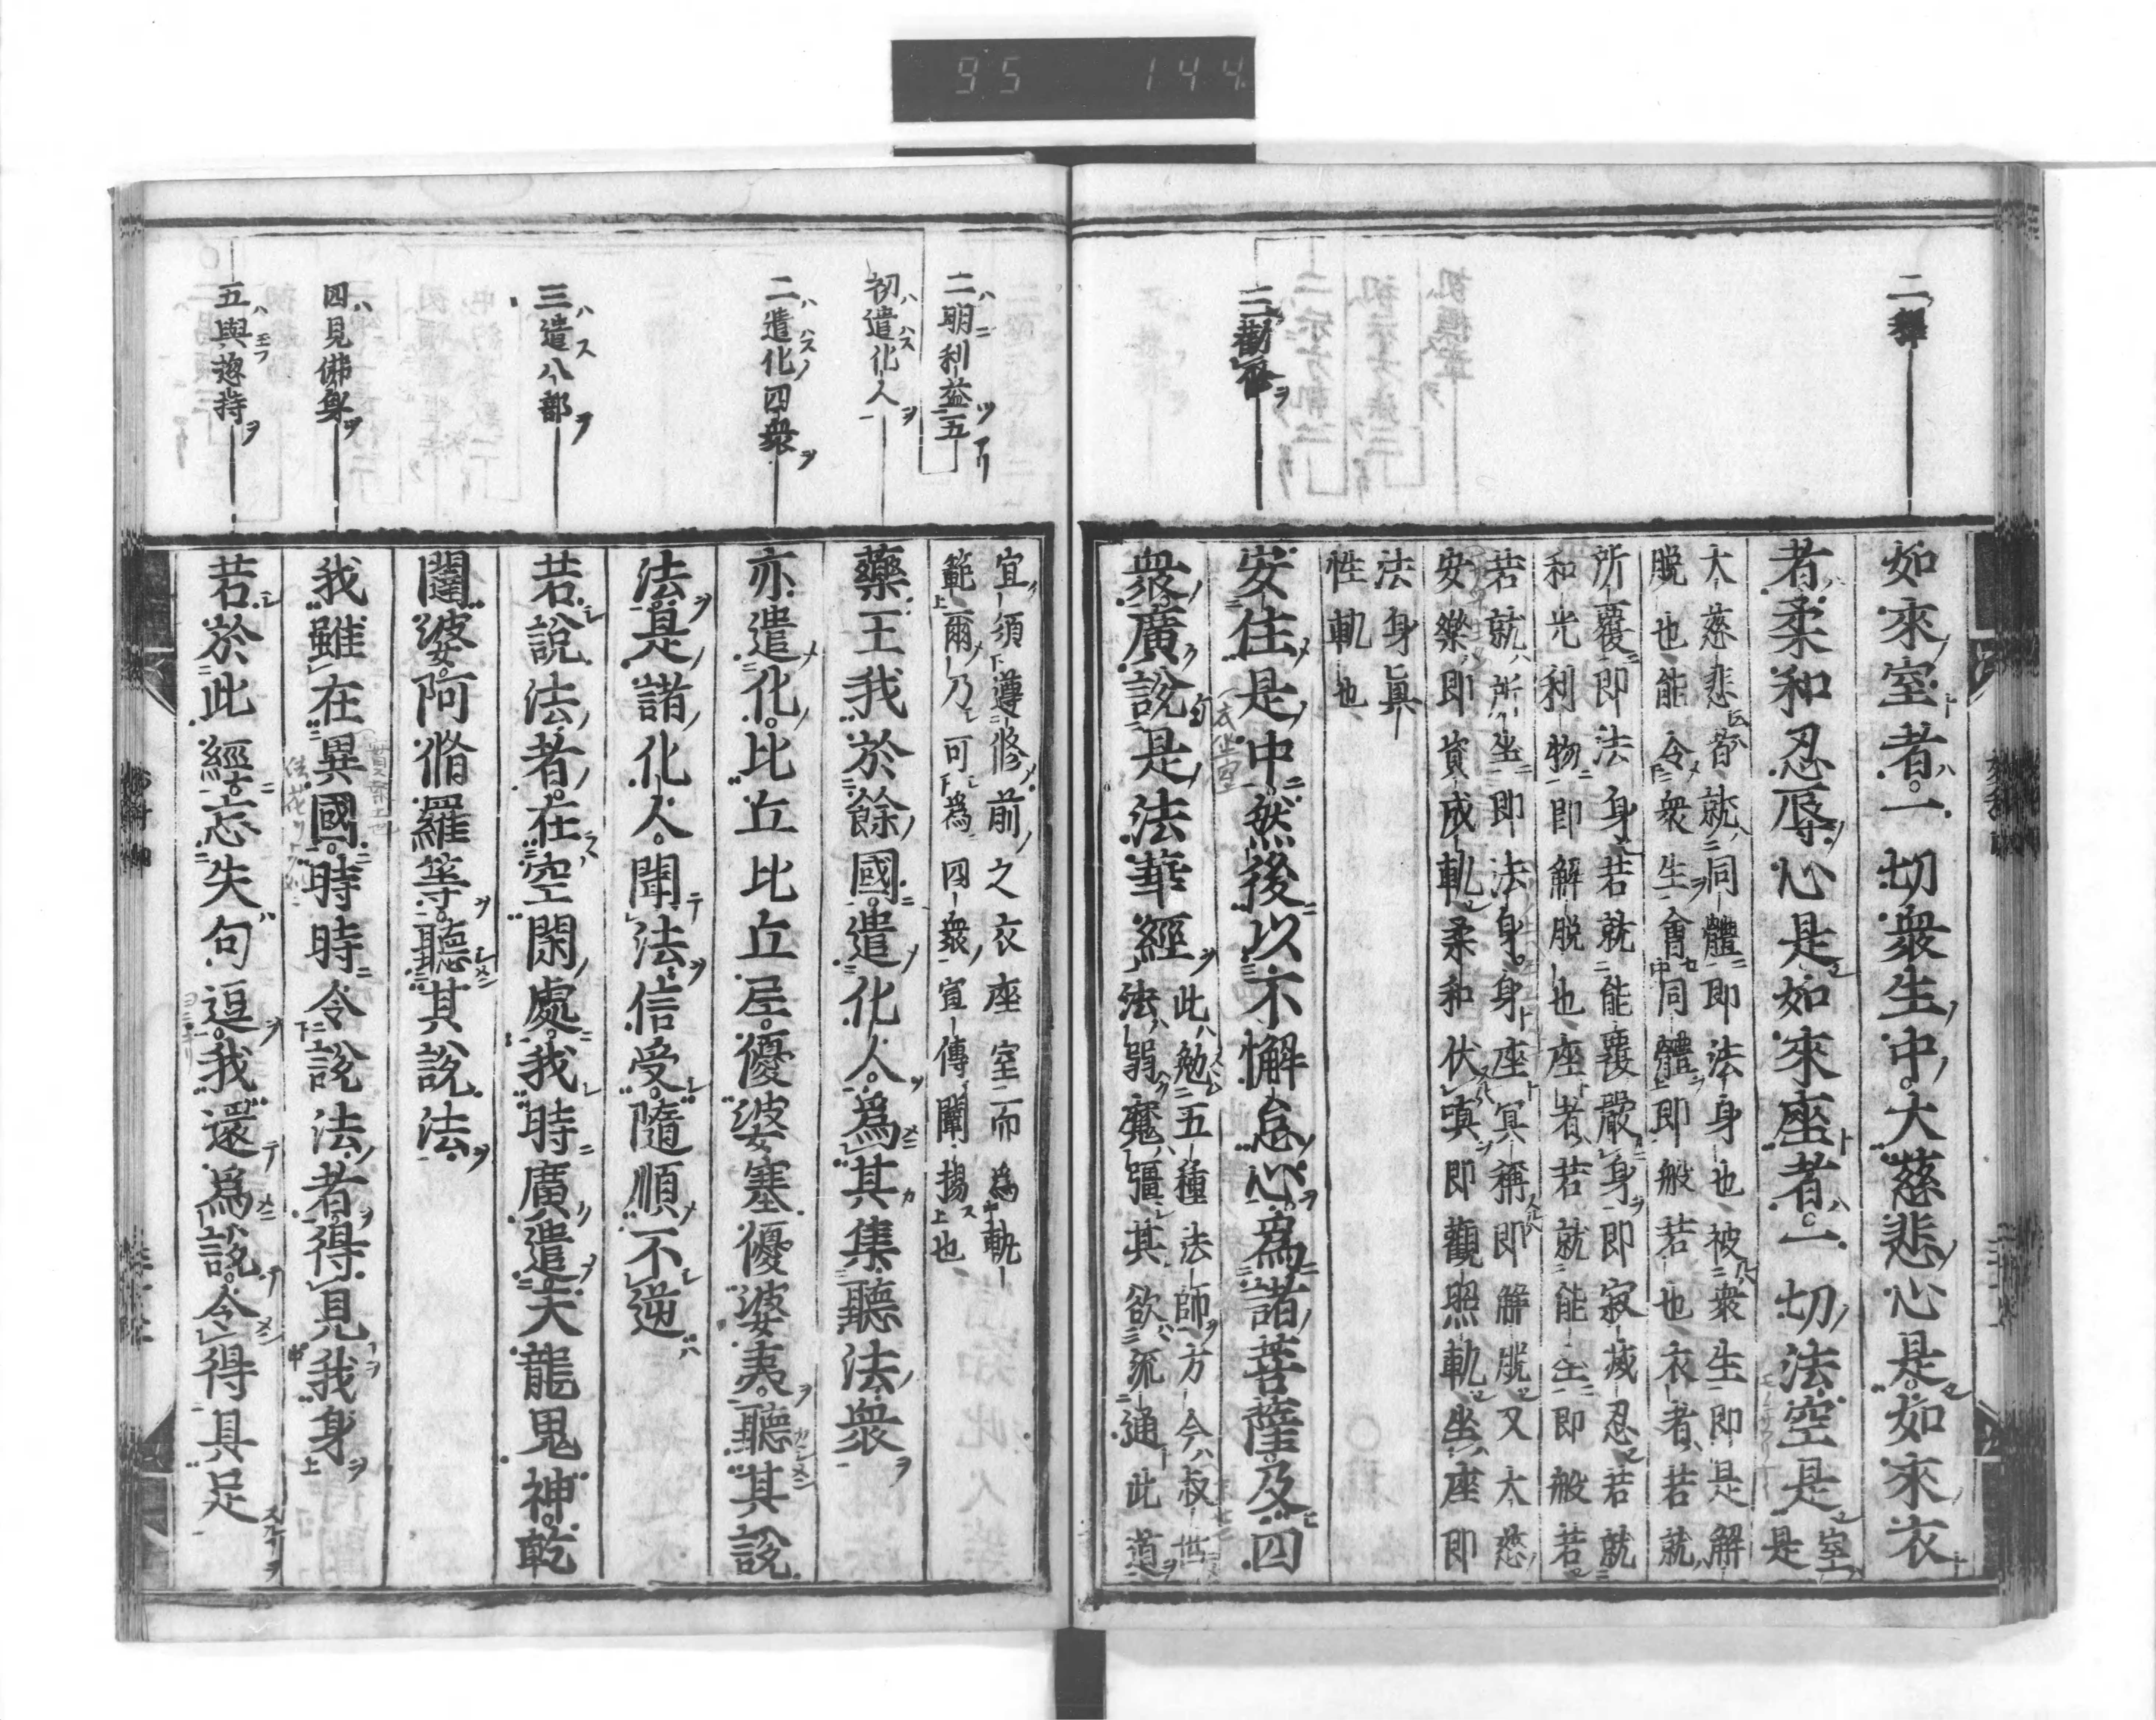 95 144
二釋
如來室者一切衆生中大慈悲心是如來衣
者柔和忍辱心是如來座者一切法空是
室
是
大慈悲者就同體即法身也被衆生即是解
脫也能令衆生會同體即般若也衣者若就
所覆即法身若就能覆嚴身即寂滅忍若就
和光利物即解脫也座者若就能坐即般若
若就所坐即法身身座冥稱即解脫又大慈
安樂即資成軌柔和伏嗔即觀照軌坐座即
法身眞
性軌也
三勸奬
安住是中然後以不懈怠心爲諸菩薩及四
衆廣說是法華經
此勉五種法師方今叔世
法弱魔彊其欲流通此道
宜須遵修前之衣座室而爲軌
範爾乃可爲四衆宣傳闡揚也
二明利益五
初遣化人
藥王我於餘國遣化人爲其集聽法衆
二遣化四衆
亦遣化比丘比丘尼優婆塞優婆夷聽其說
法是諸化人聞法信受隨順不逆
三遣八部
若說法者在空閑處我時廣遣天龍鬼神乾
闥婆阿脩羅等聽其說法
四見佛身
我雖在異國時時令說法者得見我身
五與揔持
若於此經忘失句逗我還爲說令得具足